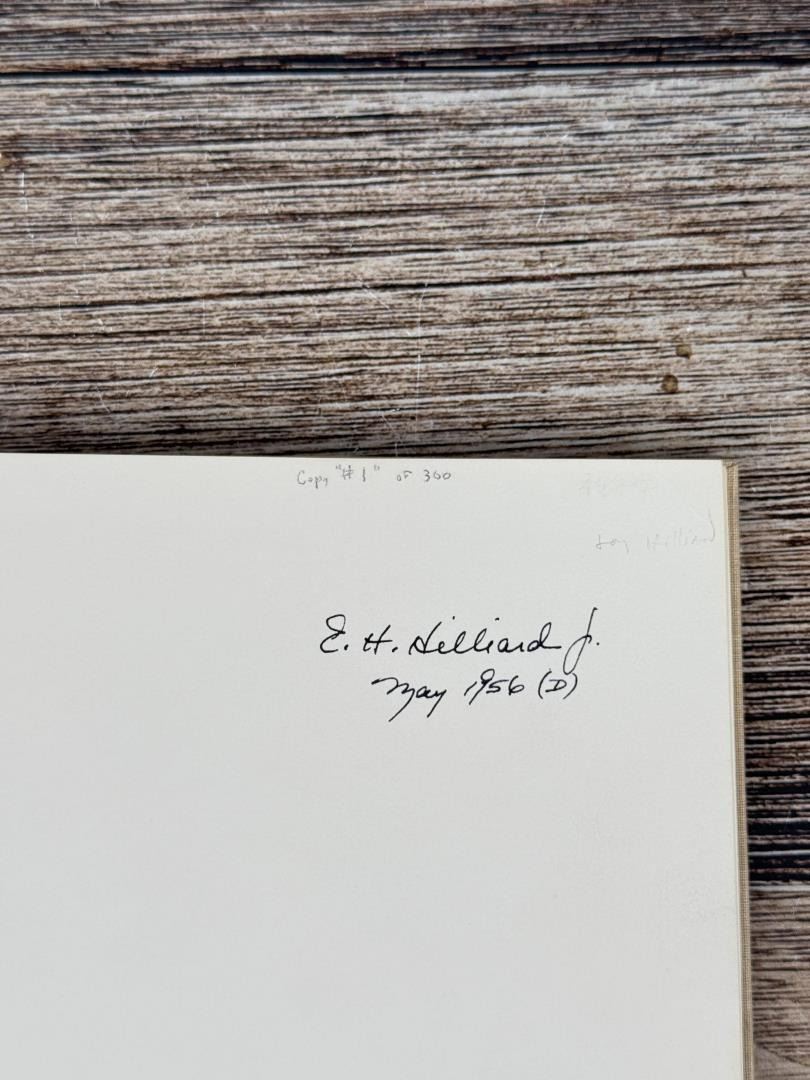 Copy "#1" of 300
Hilliard
E. H. Hilliard Jr.
May 1956 (D)